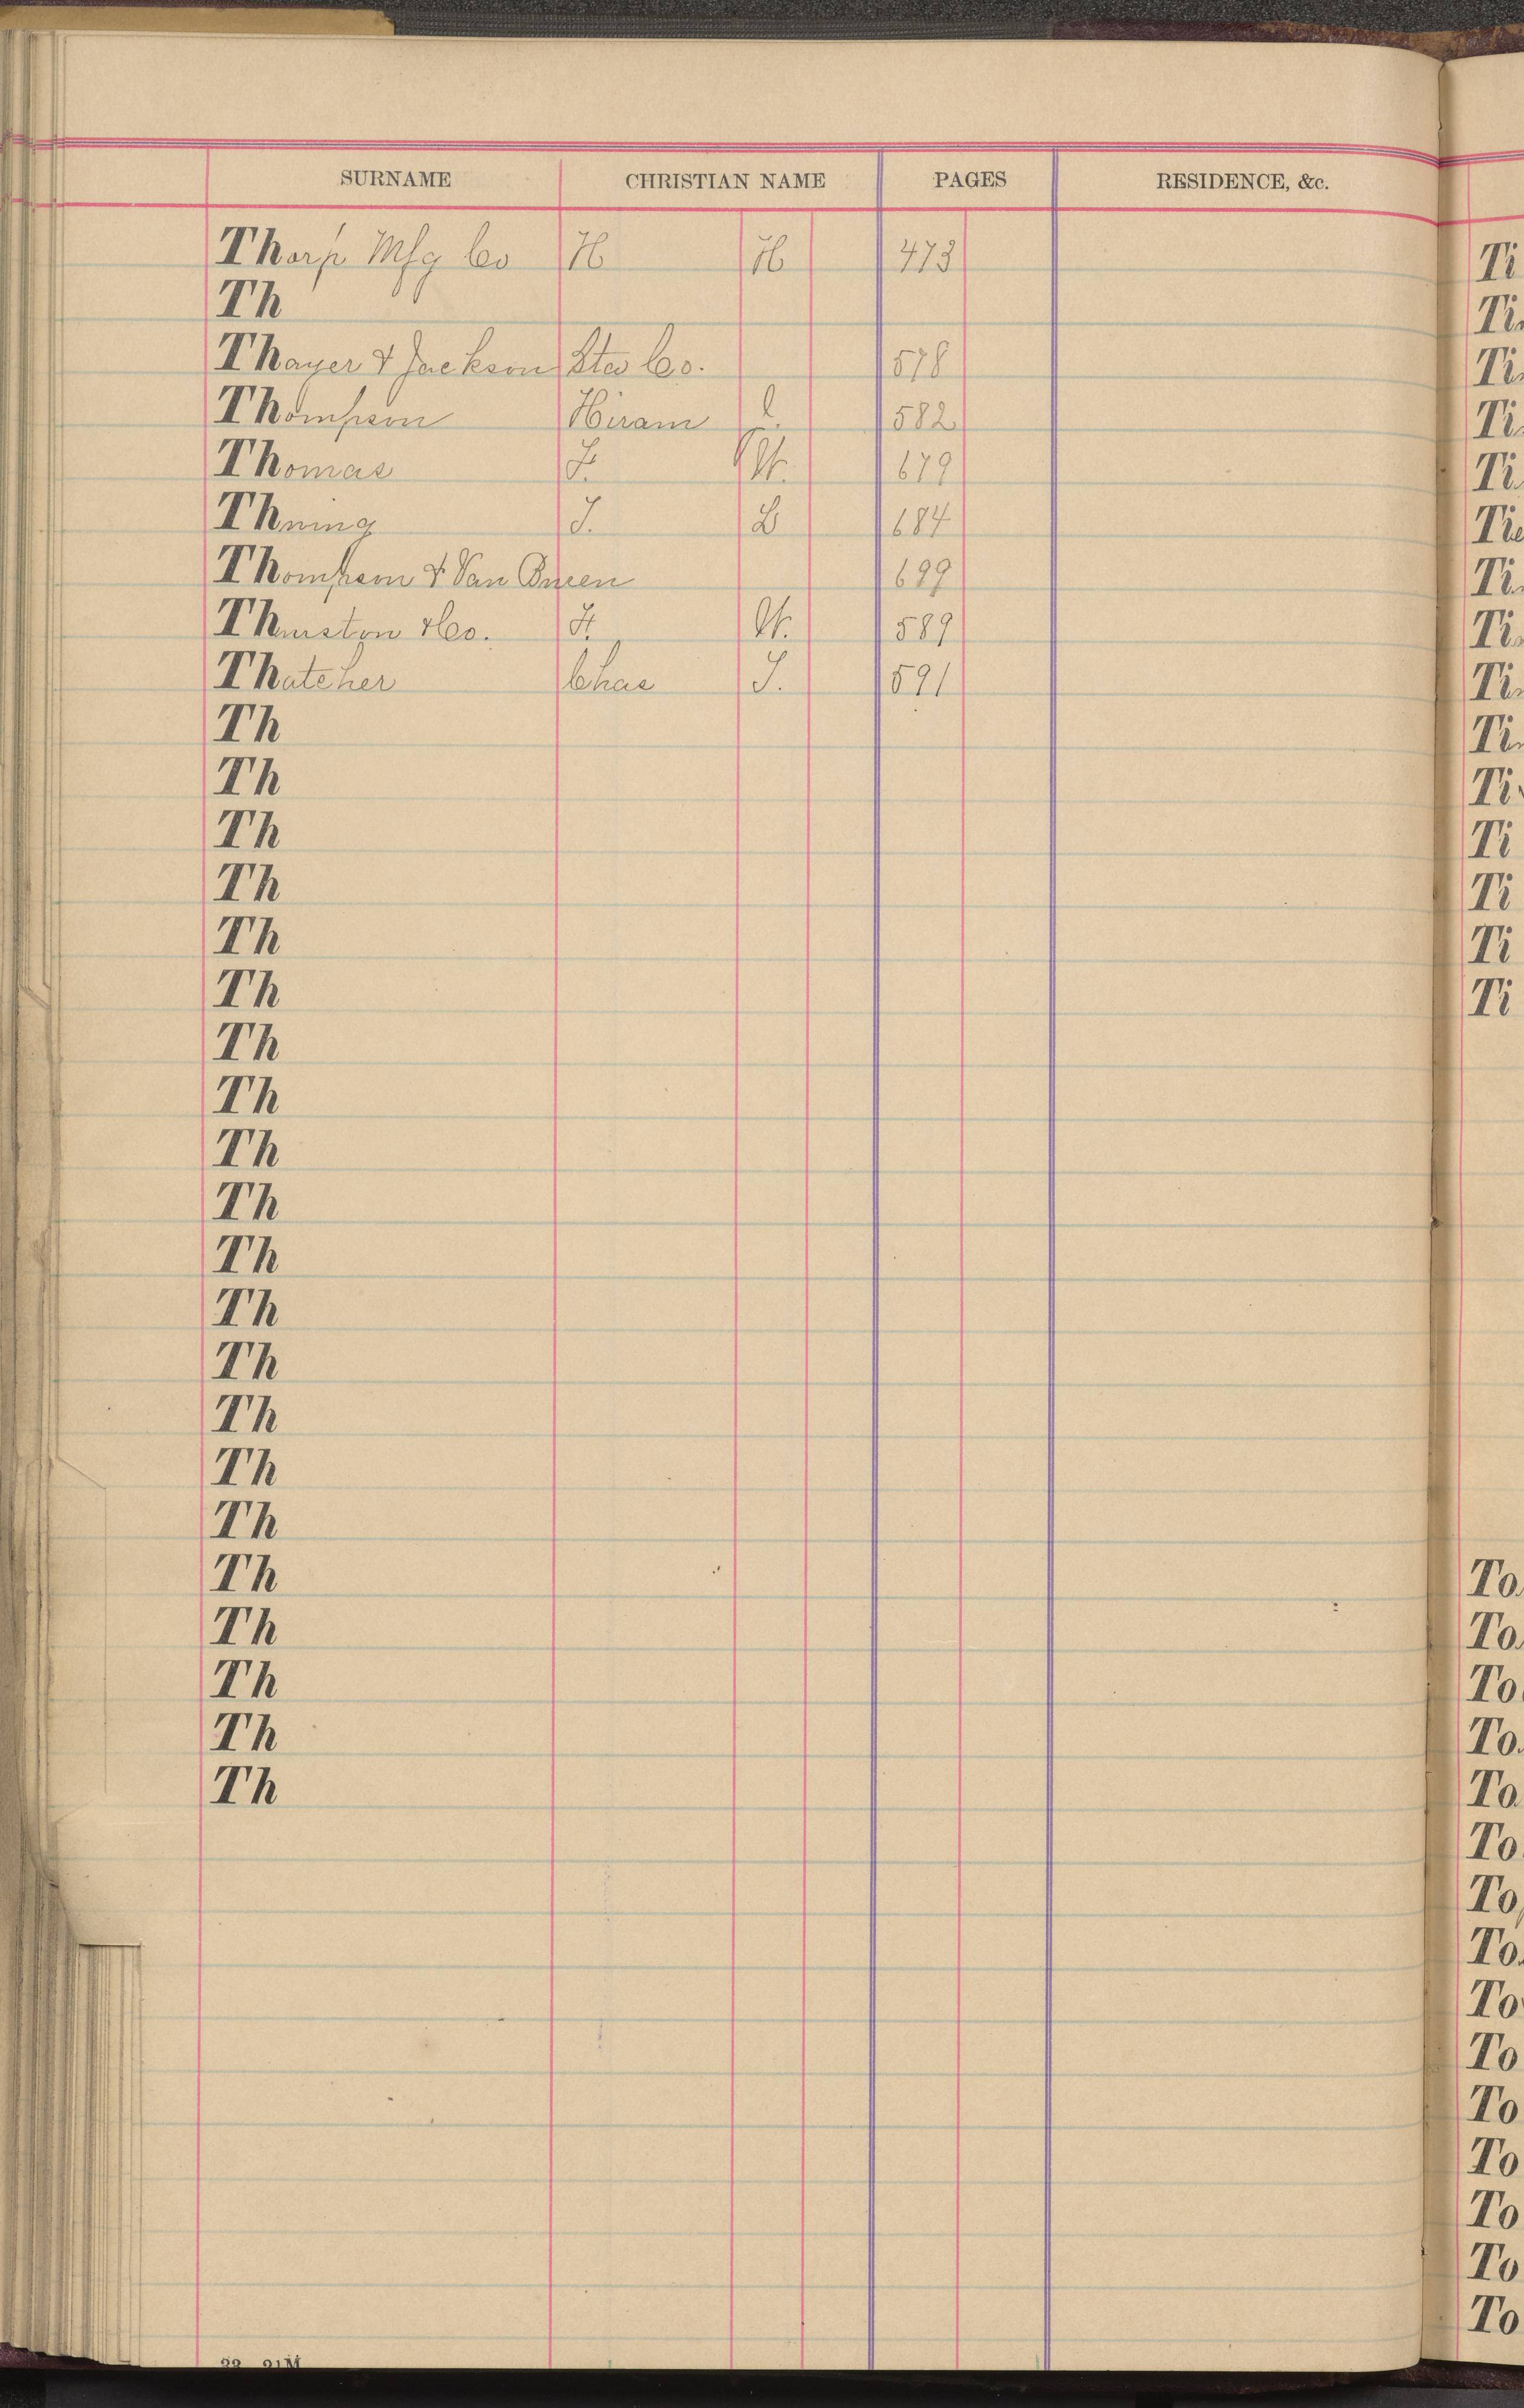 SURNAME CHRISTIAN NAME PAGES RESIDENCE, &c.
Thorp Mfg Co H H 473
Th
Thayer & Jackson Sta Co. 578
Thompson Hiram 582
Thomas F. W. 679
Thning J. B 684
Thompson & Van Buren 699
Thurston & Co. F. W. 589
Thatcher Chas J. 591
Th
Th
Th
Th
Th
Th
Th
Th
Th
Th
Th
Th
Th
Th
Th
Th
Th
Th
Th
Th
Th
Ti
Ti
Ti
Ti
Ti
Ti
Ti
Ti
Ti
Ti
Ti
Ti
Ti
Ti
Ti
To
To
To
To
To
To
To
To
To
To
To
To
To
To
To